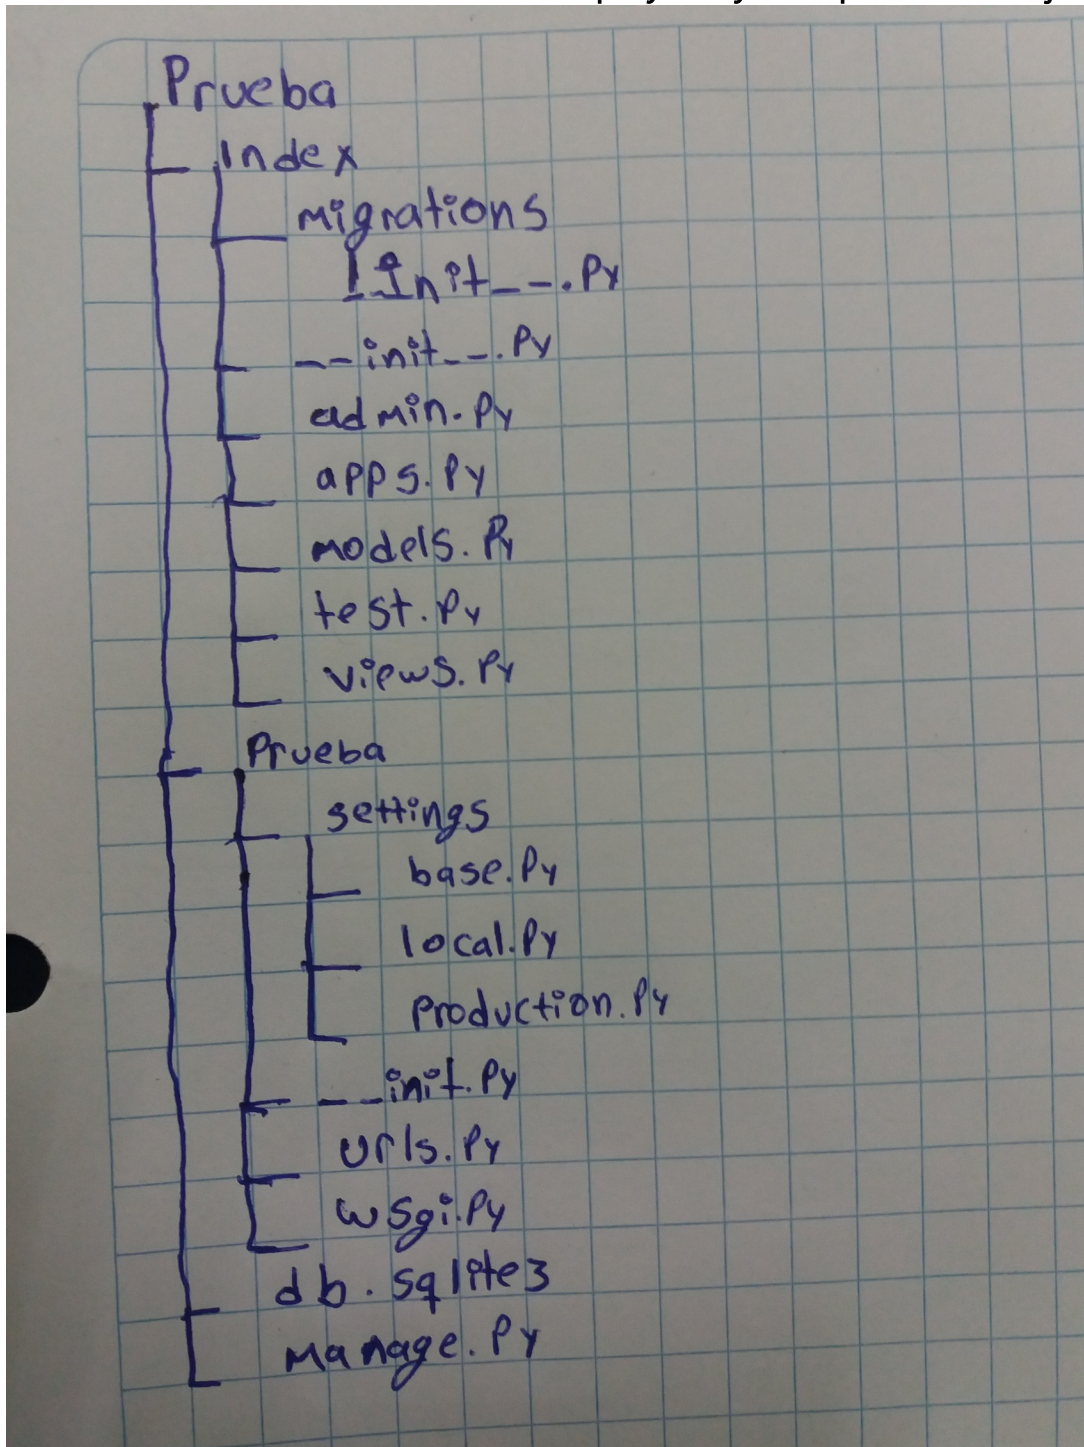 Prueba
Index
migrations
Init__.Py
__init__.Py
admin.Py
apps.Py
models.Py
test.Py
views.Py
Prueba
settings
base.Py
local.Py
production.Py
__init.Py
urls.Py
wsgi.Py
db.sqlite3
manage.Py